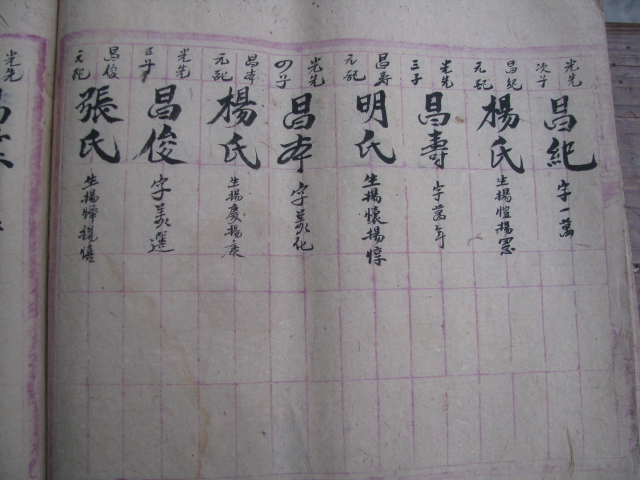 光先
次子
昌紀
字一萬
昌紀
元配
楊氏
生揚愷揚憲
光先
三子
昌壽
字萬年
昌壽
元配
明氏
生揚懷揚惇
光先
四子
昌本
字美化
昌本
元配
楊氏
生揚慶揚康
光先
五子
昌俊
字美選
昌俊
元配
張氏
光先